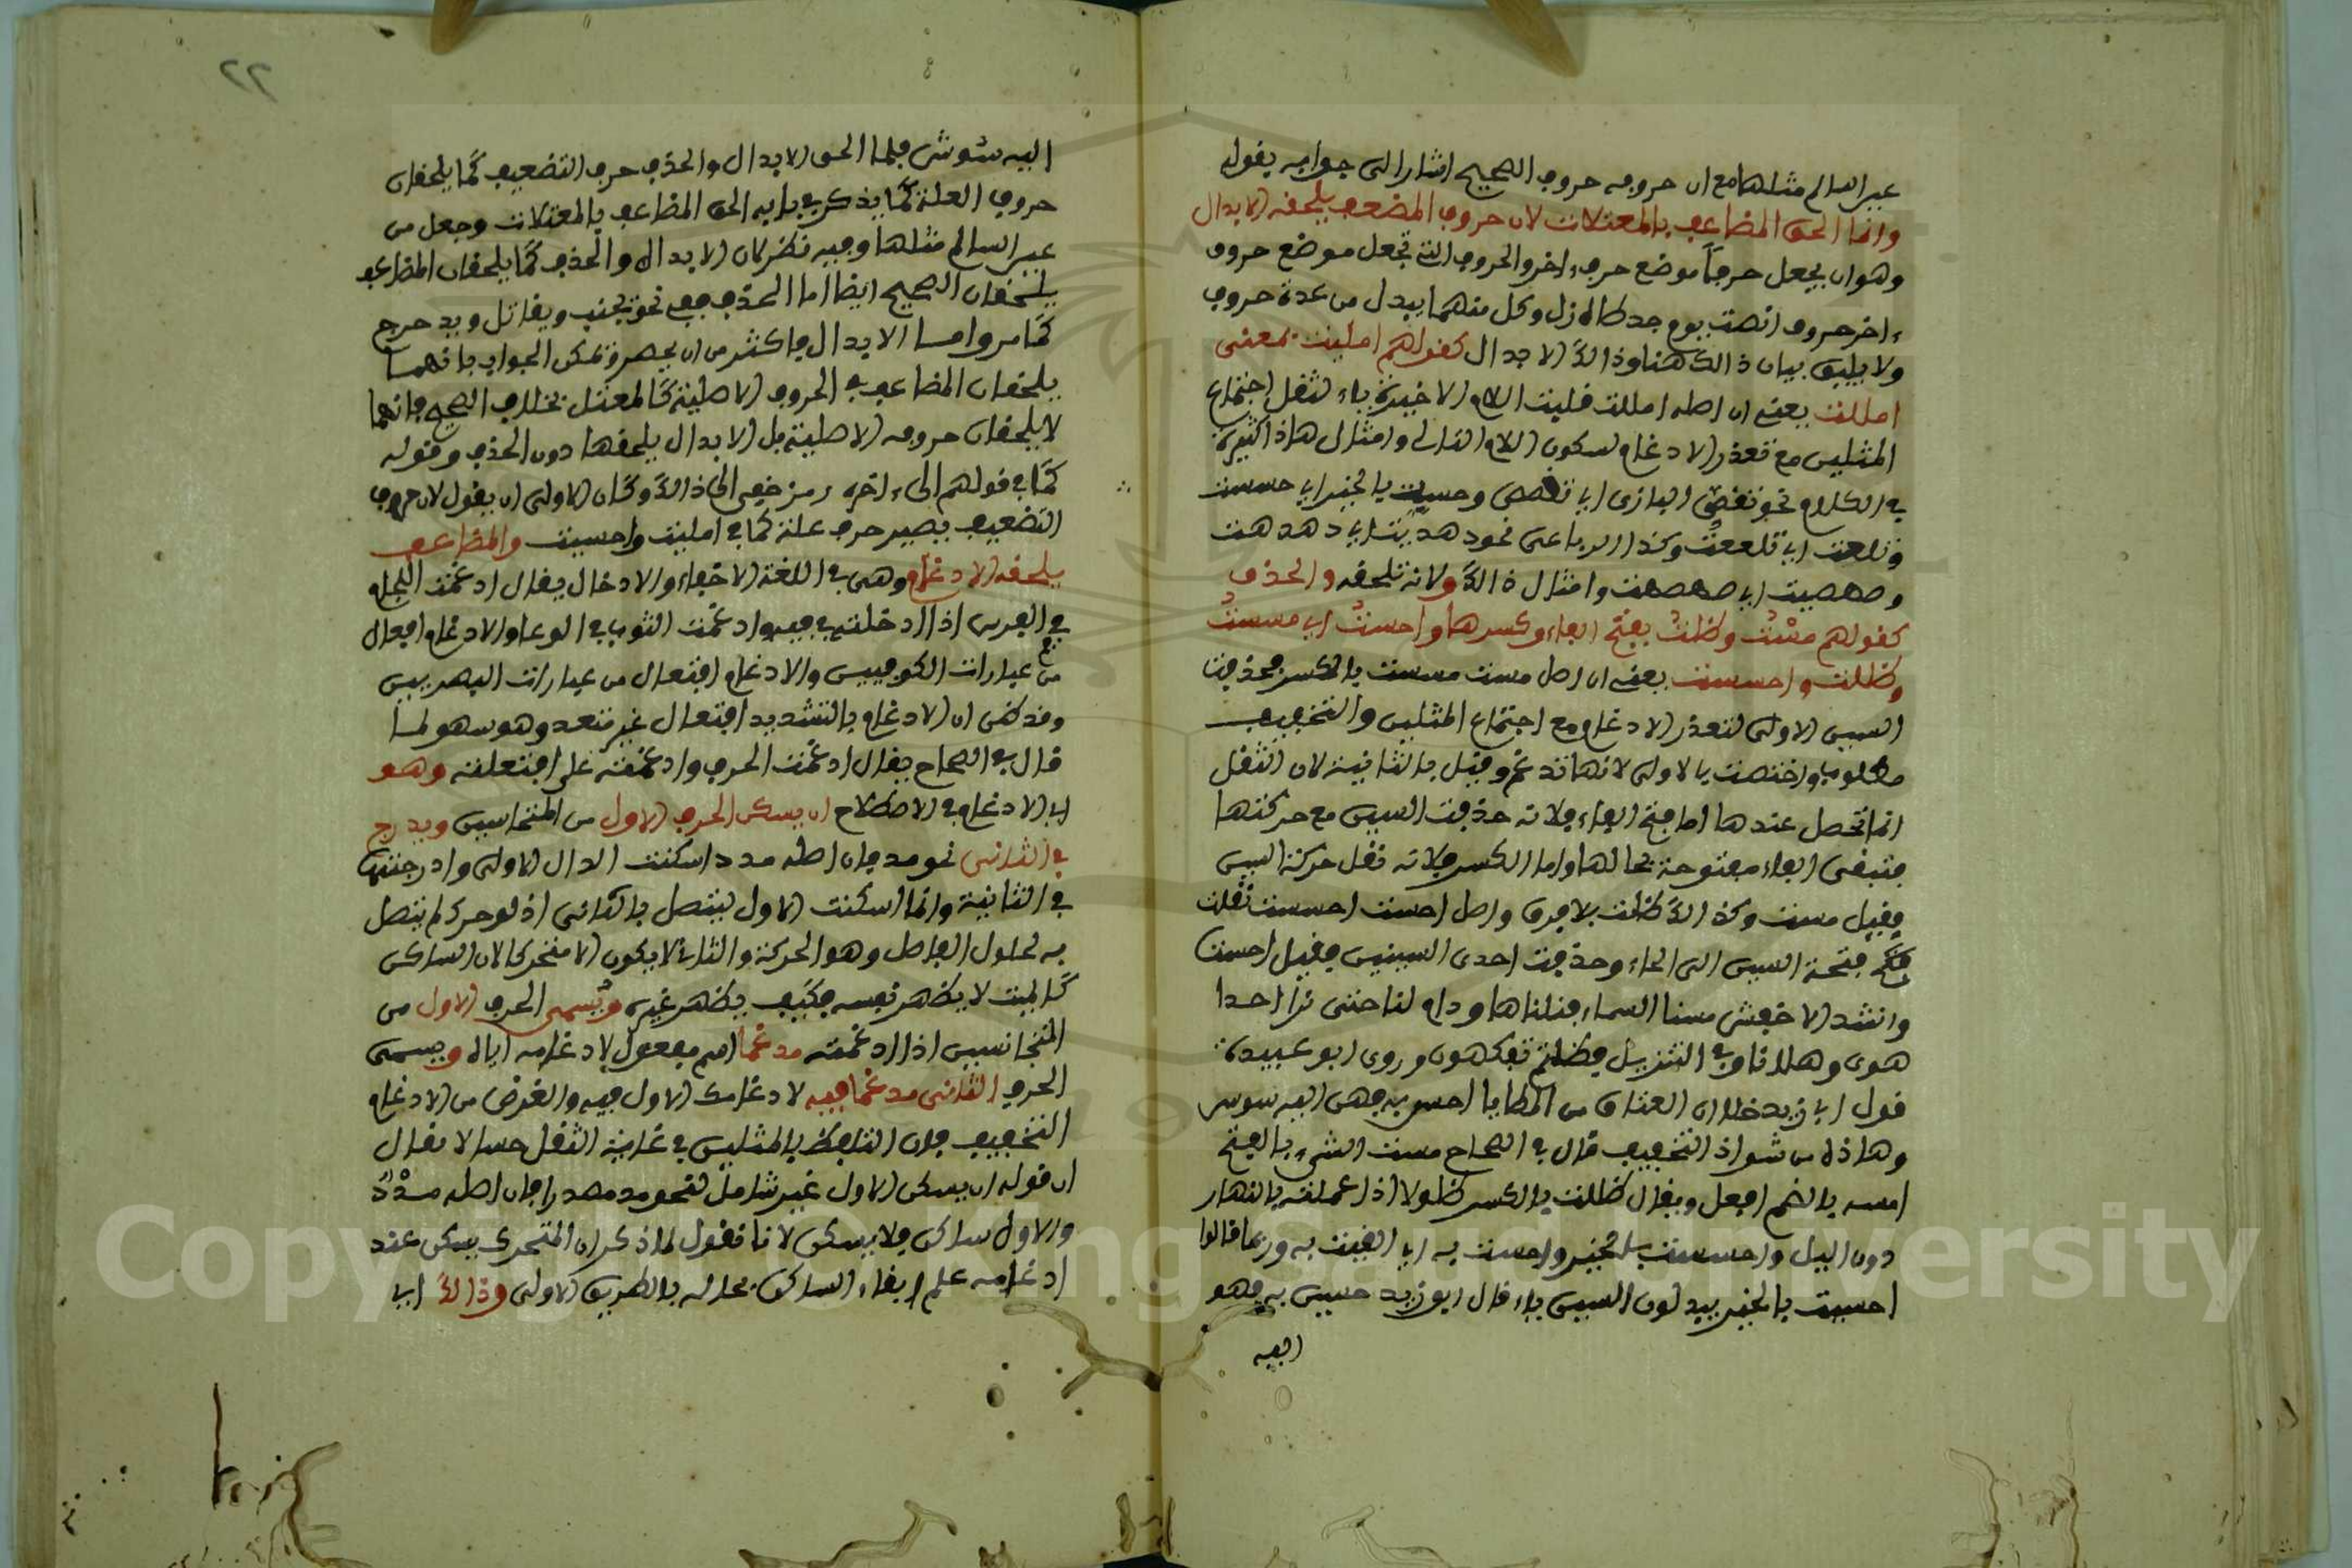 غير السالم مثلها مع ان حروفه حروف الصحيح اشار الى جوابه بقوله
وانما الحق المضاعف بالمعتلات لان حروف المضعف يلحقه الابدال
وهو ان يجعل حرفاً موضع حرف ءاخر والحروف التي تجعل موضع حروف
ءاخر حروف انصت يوم جد طاه زل وكل منهما يبدل من عدة حروف
ولا يليق بيان ذالك هنا وذالك الابدال كقولهم امليت بمعنى
امللت يعني ان اصله امللت قلبت اللام الاخيرة ياء لثقل اجتماع
المثلين مع تعذر الادغام لسكون اللام الثاني وامثال هاذا كثيرة
في الكلام نحو تقضى البازي اي تقضض وحسيت بالخبر اي حسست
وتلعت اي تلععت وكذا الرباعي نحو دهديت اي دهدهت
وصهصيت اي صهصهت وامثال ذالك ولانه يلحقه والحذف
كقولهم مست وظلت بفتح الفاء وكسرها واحست اي مسست
وظللت واحسست يعني ان اصل مست مسست بالكسر فحذفت
السين الاولى لتعذر الادغام مع اجتماع المثلين والتخفيف
مطلوب واختصت بالاولى لانها تدغم وقيل بالثانية لان الثقل
انما تحصل عندها اما فتح الفاء فلانه حذفت السين مع حركتها
فتبقى الفاء مفتوحة بحالها واما الكسر فلانه نقل حركة السين
فقيل مست وكذالك ظلت بلا فرق واصل احست احسست نقلت
فتحة السين الى الحاء وحذفت احدى السينين فقيل احست
وانشد الاخفش مسنا السماء فنلناها ودام لنا حتى نرا احدا
هوى وهلانا وفي التنزيل فظلتم تفكهون وروى ابو عبيدة
قول ابا زبيد خلا ان العتاق من المطايا احسن به فهن اليه شوس
وهاذا من شواذ التخفيف قال في الصحاح مست الشيء بالفتح
امسه بالضم افعل ويقال ظللت بالكسر ظلولا اذا عملته بالنهار
دون اليل واحسست بالخبر واحست به اي ايقنت به وربما قالوا
احسيت بالخبر يبدلون السين ياء قال ابو زبيد حسين به فهو
اليه
٢٢
اليه شوش فلما الحق الابدال والحذف حرف التضعيف كما يلحقان
حروف العلة كما يذكر في بابه الحق المضاعف بالمعتلات وجعل من
غير السالم مثلها وفيه نظر لان الابدال والحذف كما يلحقان المضاعف
يلحقان الصحيح ايضا اما الحذف ففي نحو تجنب ويقاتل ويدحرج
كما مر واما الابدال فاكثر من ان يحصر ويمكن الجواب بانهما
يلحقان المضاعف في الحروف الاصلية كالمعتل بخلاف الصحيح فانهما
لا يلحقان حروفه الاصلية بل الابدال يلحقها دون الحذف وقوله
كما في قولهم الى ءاخره رمز خفي الى ذالك وكان الاولى ان يقول لان حروف
التضعيف يصير حرف علة كما في امليت واحسيت والمضاعف
يلحقه الادغام وهي في اللغة الاخفاء والادخال يقال ادغمت اللجام
في الفرس اذا ادخلته في فيه وادغمت الثوب في الوعاء والادغام افعال
من عبارات الكوفيين والادغام افتعال من عبارات البصريين
وقد ظن ان الادغام بالتشديد افتعال غير متعد وهو سهو لما
قال في الصحاح يقال ادغمت الحرف وادغمته على افتعلته وهو
اي الادغام في الاصطلاح ان يسكن الحرف الاول من المتجانسين ويدرج
في الثاني نحو مد فان اصله مدد اسكنت الدال الاولى وادرجتها
في الثانية وانما اسكنت الاول ليتصل بالثاني اذ لو حرك لم يتصل
به لحلول الفاصل وهو الحركة والثاني لا يكون الا متحركا لان الساكن
كالميت لا يظهر نفسه فكيف يظهر غيره ويسمى الحرف الاول من
المتجانسين اذا ادغمته مدغما اسم مفعول لادغامه اياه ويسمى
الحرف الثاني مدغما فيه لادغامك الاول فيه والغرض من الادغام
التخفيف فان التلفظ بالمثلين في غاية الثقل حسا لا يقال
ان قوله ان يسكن الاول غير شامل لنحو مد مصدرا فان اصله مدد
والاول ساكن فلا يسكن لانا نقول لما ذكر ان المتحرك يسكن عند
ادغامه علم ابقاء الساكن بحاله بالطريق الاولى وذالك اي
Copyright © King Saud University